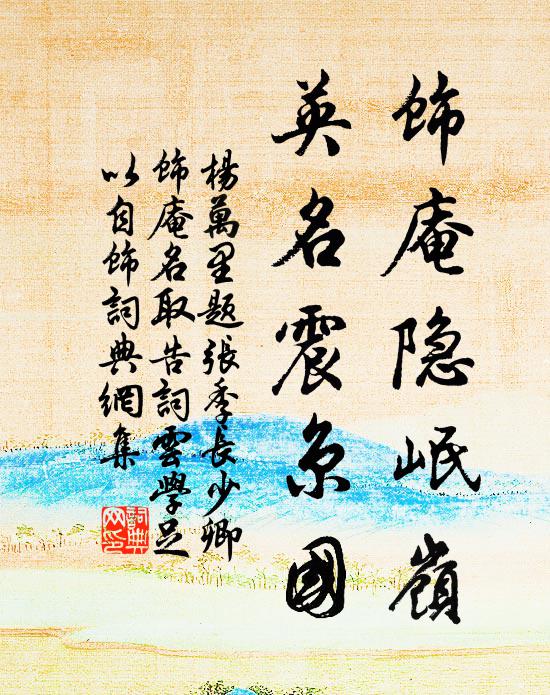 飾庵隐岷嶺
英名震京國
楊萬里題張季長少卿
飾庵名取告詞雲學足
以自飾詞典網集
詞典
网印